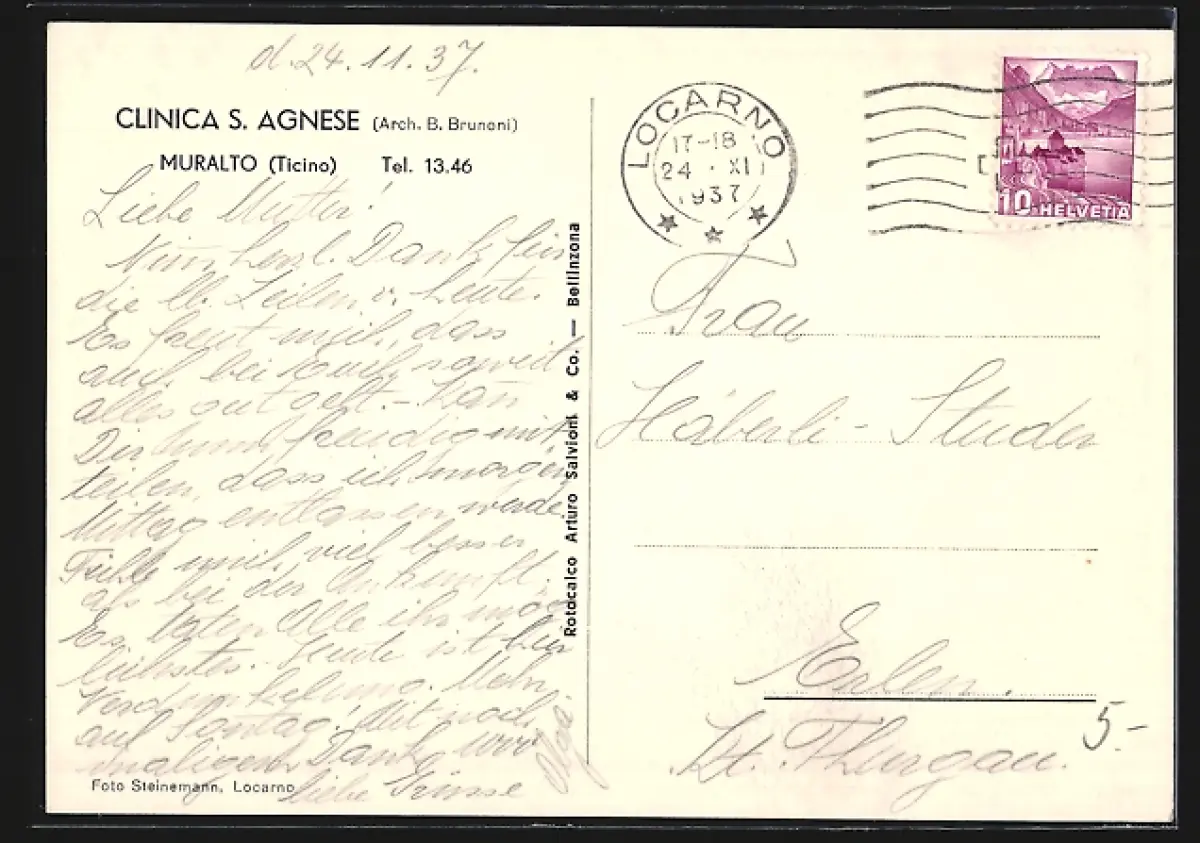 d. 24. 11. 37.
CLINICA S. AGNESE (Arch. B. Brunoni)
MURALTO (Ticino) Tel. 13.46
Liebe Mutter!
Nimm herzl. Dank für
die lb. Zeilen v. heute.
Es freut mich, dass
auch bei Euch soweit
alles gut geht. - Kann
Dir freudig mit-
teilen, dass ich morgen
Mittag entlassen werde.
Fühle mich viel besser
als bei der Ankunft.
Es taten alle ihr mög-
lichstes. Heute ist hier
Verdunkelung. Mehr
auf Sontag! Mit noch-
maligem Dank u.
liebe Grüsse
Foto Steinemann, Locarno
Rotocalco Arturo Salvioni & Co. — Bellinzona
LOCARNO
17-18
24. XI
1937
10 HELVETIA
Frau
Häberli - Studer
Erlen.
Kt. Thurgau.
5.-